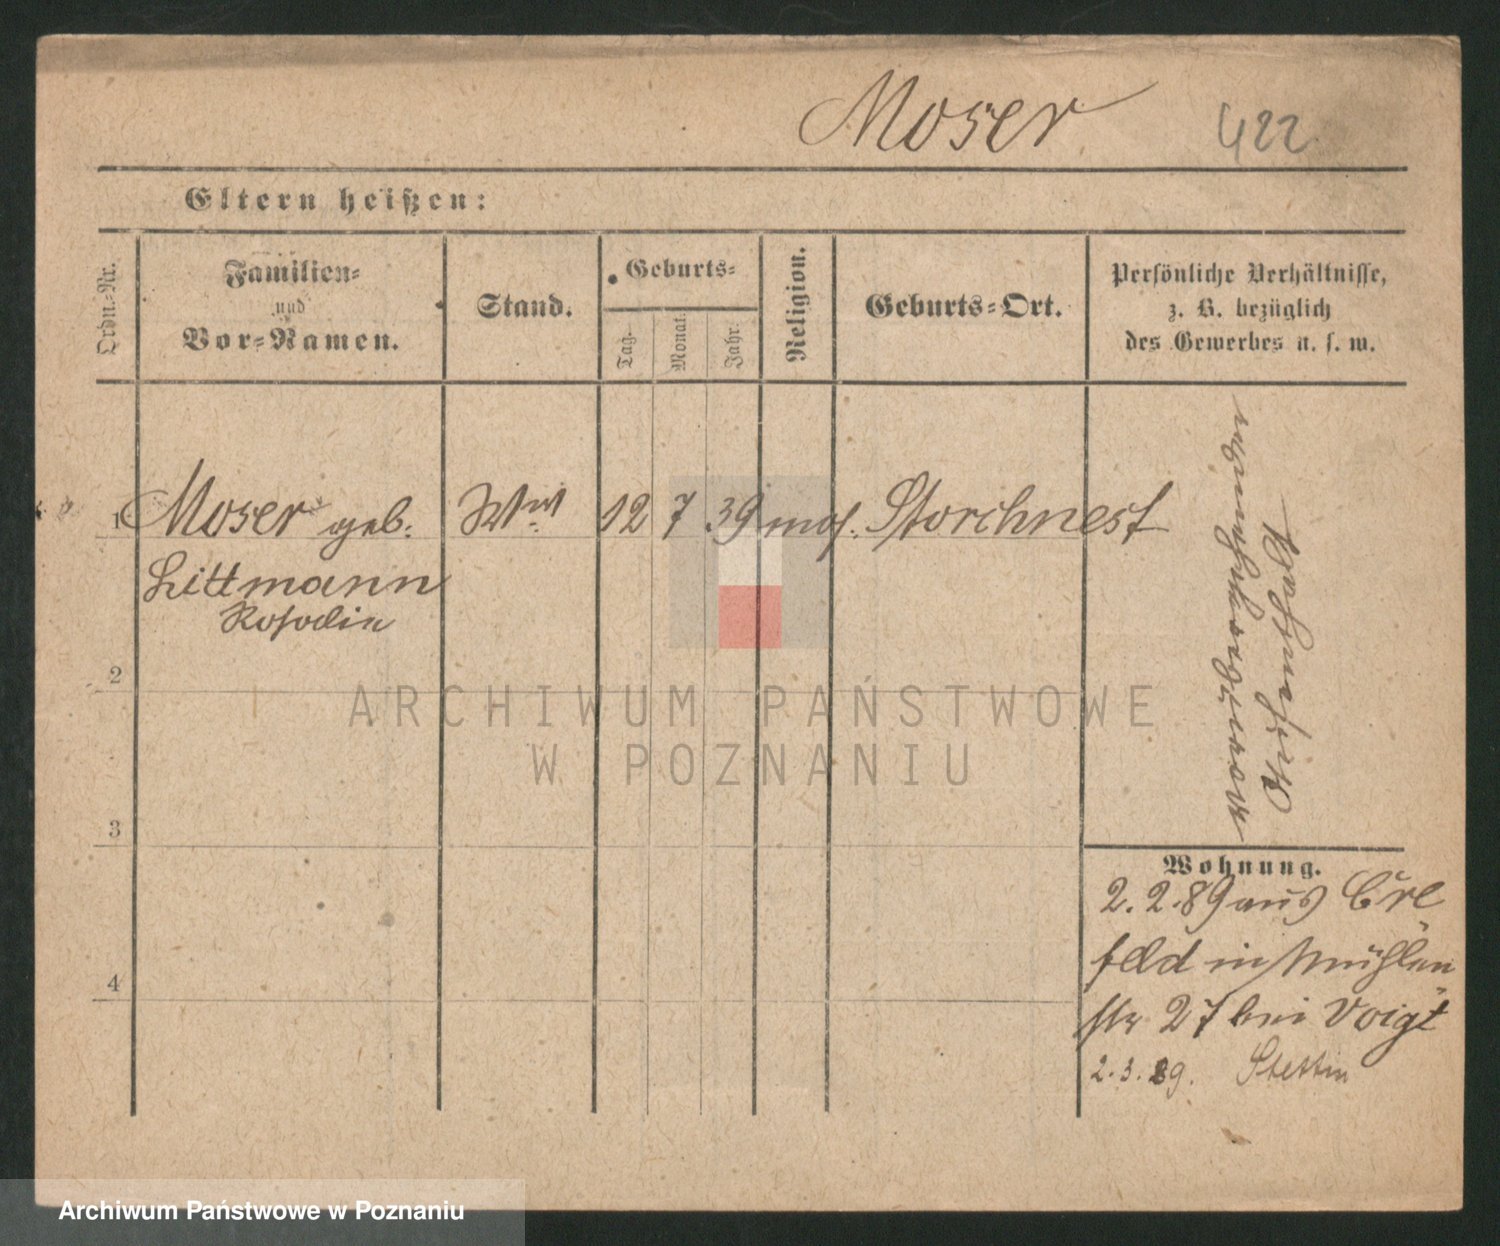 Moser 422
Eltern heißen:
Ordn.-Nr.
Familien-
und
Vor-Namen.
Stand.
Geburts-
Tag.
Monat.
Jahr.
Religion.
Geburts-Ort.
Persönliche Verhältnisse,
z. B. bezüglich
des Gewerbes u. s. w.
1 Moser geb. Wwe 12 7 39 mos. Storchnest
Littmann
Rosalie
2
3
4
Wohnung.
2.2.89 aus Cre
feld in Mühlen
str 27 bei Voigt
2.3.89. Stettin
ARCHIWUM PAŃSTWOWE
W POZNANIU
Archiwum Państwowe w Poznaniu